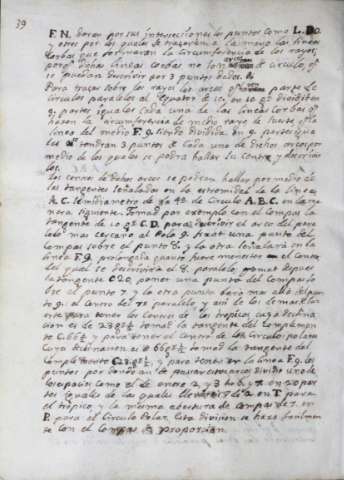 39
E N. daran por sus intersecciones los puntos como L. D O
y otros por los quales se trazaran a la mano las lineas
corbas que formaran la circunferencia de los rayos,
porq. dichas lineas corbas no son de circulo, q. no
se puedan descrivir por 3 puntos dados.
Para trazar sobre los rayos los arcos parte de
circulos paralelos al Equator de 10, en 10 gs. dividiendo
9 partes iguales cada una de las lineas corbas q.
hacen la circunferencia de medio rayo de suerte q. la
linea del medio F. g. siendo dividida en 9 partes igua
les se tendran 3 puntos de cada uno de dichos arcos por
medio de los quales se podra hallar su centro y descrivir
los.
Los centros de dichos arcos se podran hallar por medio de
las tangentes señaladas en la estremidad de la linea
A C. semidiametro de la 4a. de Circulo A. B C. en la ma
nera siguiente. Tomad por exemplo con el compas la
tangente de 10 gs. C D. para descrivir el arco del para
lelo mas cercano al Polo g. fixese una punta del
compas sobre el punto 8 y la otra señalara en la
linea F g. prolongada quanto fuere menester el centro
del qual se descrivira el 8. paralelo tomad despues
la tangente C 20. poned una punta del compas so
bre el punto 7 y la otra punta dara mas alla del pun
to g. el centro del 7o. paralelo y asi de los demas.
para tener los centros de los tropicos cuya declina
cion es de 23 gs ½ tomad la tangente del Complemen
to C. 66 ½ y para tener el centro del circulo polar
cuya declinacion es de 66 gs ½ tomad la tangente del
Complemento C 23 gs ½ y para tener en la linea F g. los
puntos por donde an de pasar estos arcos dividid uno de
los espacios como el de entre 2 y 3 en 20 par
tes iguales de las quales de 2 en T. para
el tropico, y la misma abertura de compas de 7. en
P. para el Circulo Polar. Esta division se hace facilmen
te con el compas de proporcion.